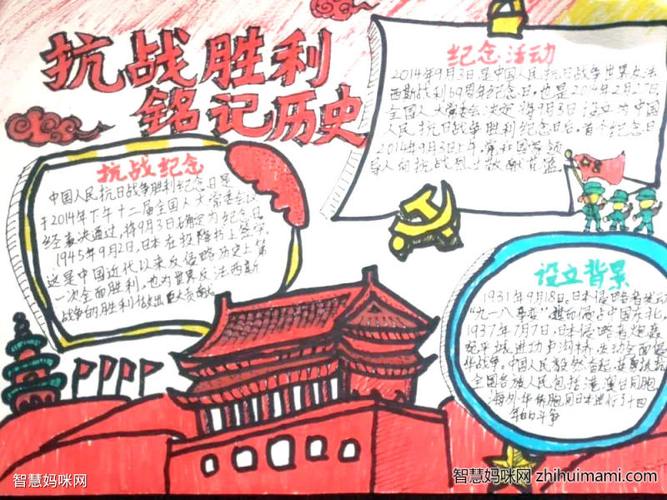 抗战胜利
铭记历史
纪念活动
2014年9月3日是中国人民抗日战争世界反法
西斯战利69周年纪念日,也是2014年2月27日
全国人大常委会决定将9月3日设立为中国
人民抗日战争胜利纪念日后,首个纪念日
2014年9月3日上午,
抗战纪念
中国人民抗日战争胜利纪念日是
于2014年下午十二届全国人大常委会
经表决通过,将9月3日确定为纪念日
1945年9月2日,日本在投降书上签字
这是中国近代以来反侵略历史上第
一次全面胜利,也为世界反法西斯
战争的胜利做出巨大贡献
设立背景
1931年9月18日,日本侵略者发动
“九一八事变”,中国东北。
1937年7月7日,日本侵略者炮轰
宛平城进攻卢沟桥,发动全面侵
华战争。中国人民毅然奋起,
全国各族人民包括港澳台同胞
海外华侨同胞同日本进行了十四
年的斗争
智慧妈咪网
智慧妈咪网 zhihuimami.com